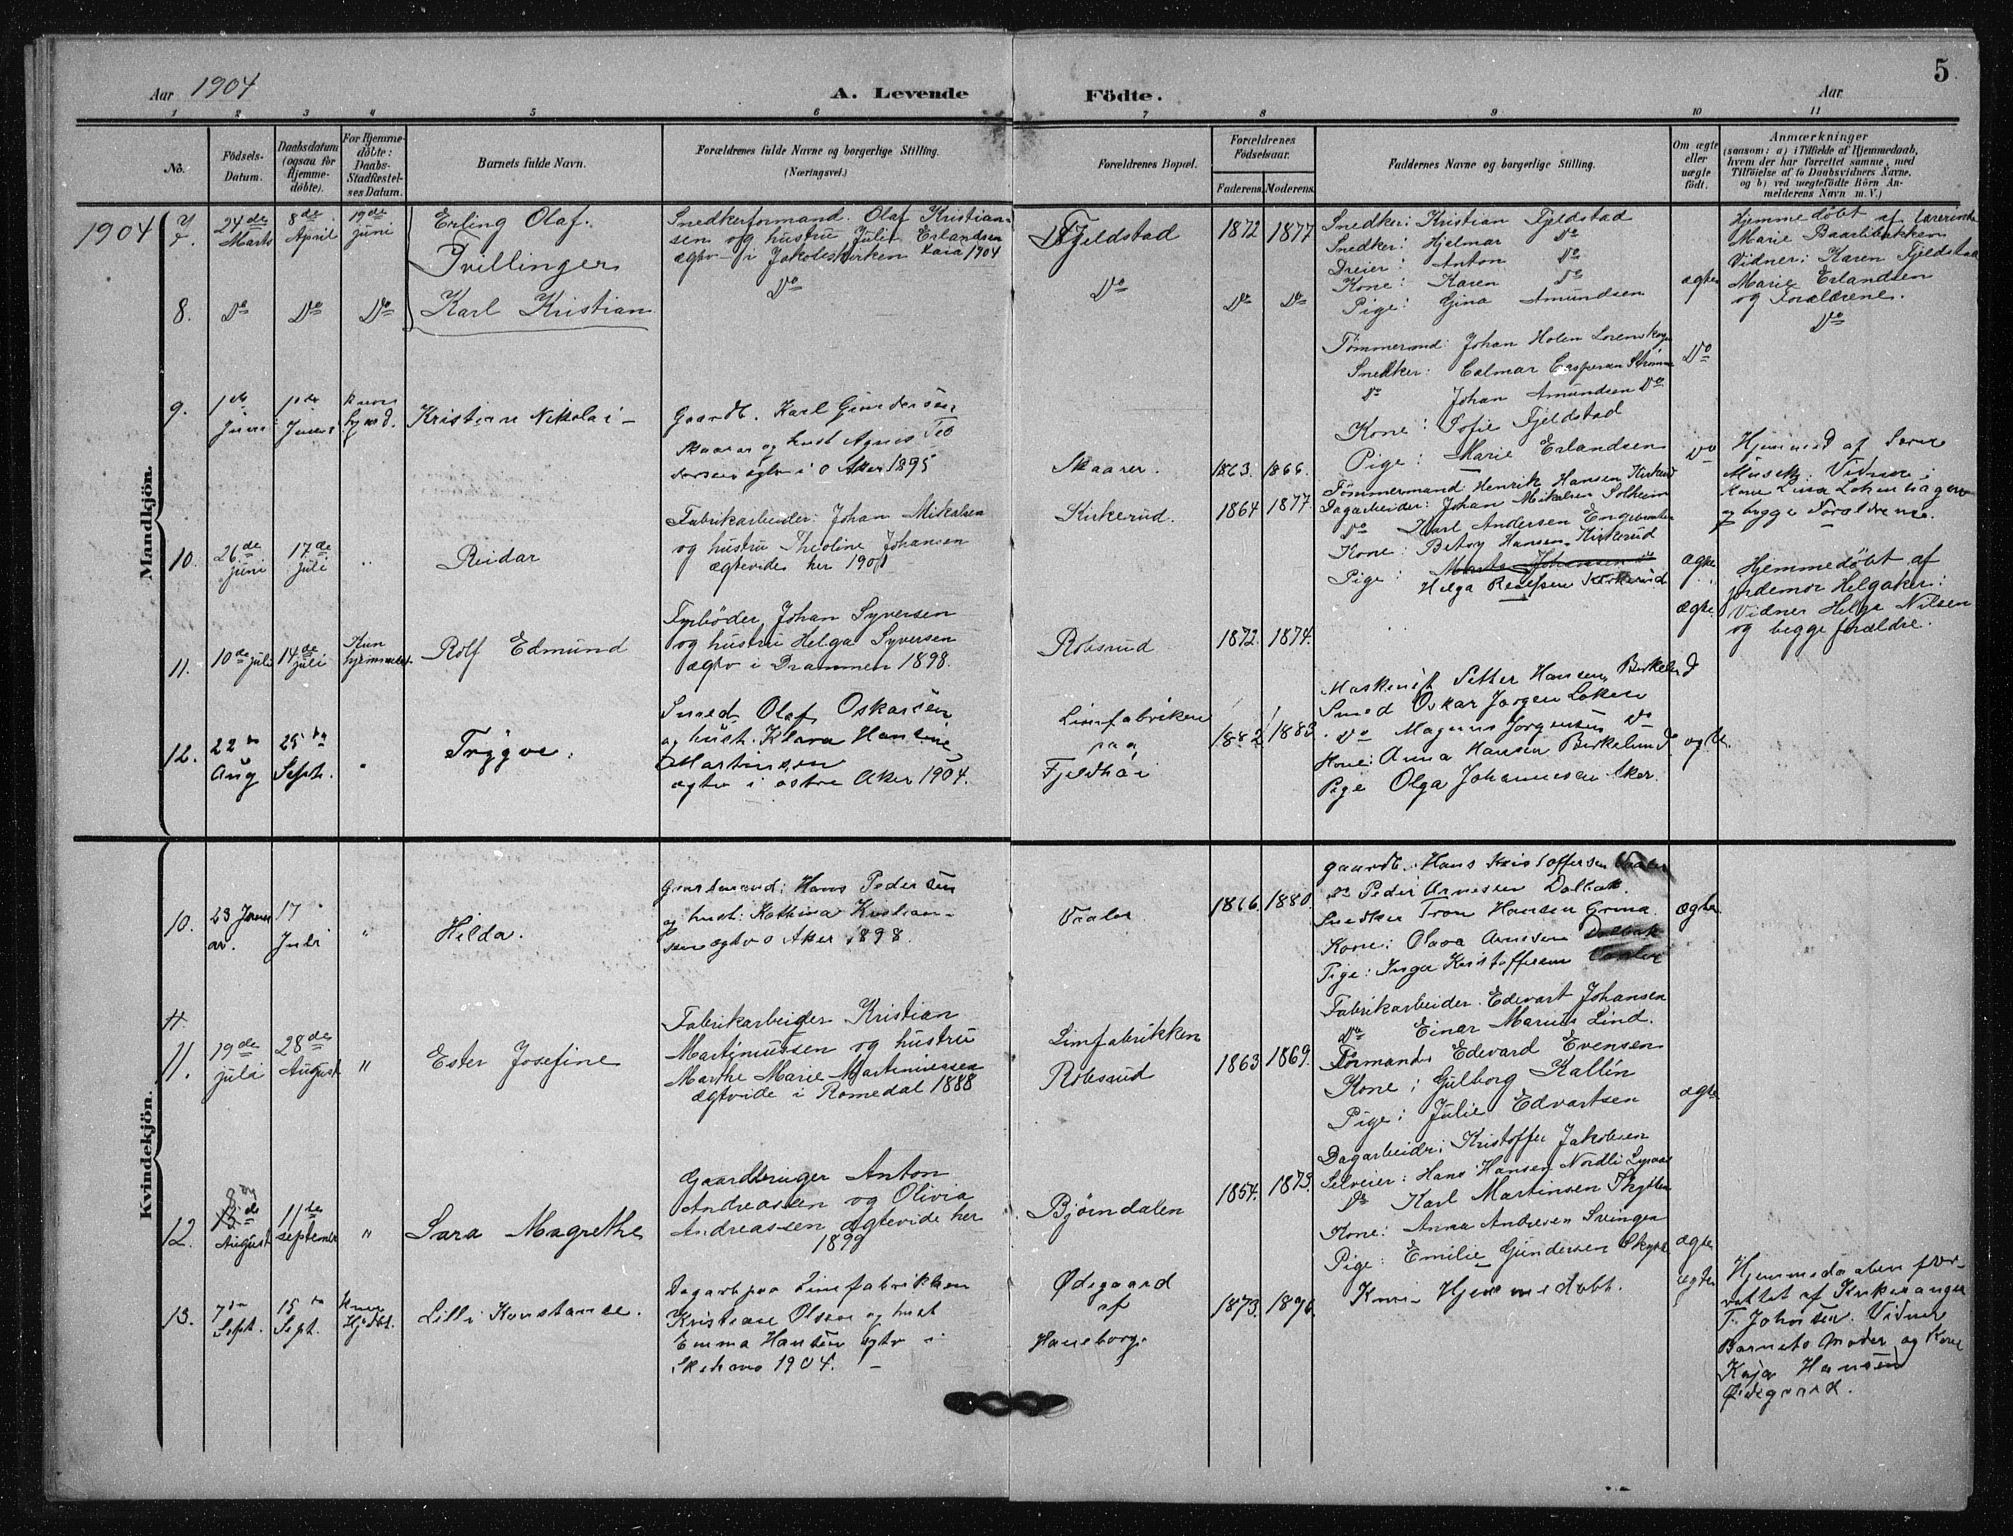 5
Aar 1904
A. Levende Födte.
Aar
1 2 3 4 5 6 7 8 9 10 11
No.
Födsels-
Datum.
Daabsdatum
(ogsaa for
Hjemme-
döbte).
For Hjemme-
döbte:
Daabs-
Stadfæstel-
ses Datum.
Barnets fulde Navn.
Forældrenes fulde Navne og borgerlige Stilling.
(Næringsvei.)
Forældrenes Bopæl.
Forældrenes
Födselsaar.
Faderens. Moderens.
Faddernes Navne og borgerlige Stilling.
Om ægte
eller
uægte
födt.
Anmærkninger
(saasom: a) i Tilfælde af Hjemmedaab,
hvem der har forrettet samme, med
Tilföielse af to Daabsvidners Navne,
og b) ved uegtefödte Börn An-
melderens Navn m. V.)
Mandkjön.
1904
7.
24de
Marts
8de
April
19de
juni
Erling Olaf.
Tvillinger
Snedkerformand. Olaf Kristian-
sen og hustru Julie Erlandsen
ægtv i Jakobskirken 1904
Fjeldstad
1872 1877
Snedker: Kristian Fjeldstad
Snedker: Hjelmar Do
Dreier: Anton Do
Kone: Karen Do
Pige: Gina Amundsen
ægte
Hjemmedøbt af lærerinde
Marie Baarlibakken
Vidner: Karen Fjeldstad
Marie Erlandsen
og Forældrene.
8.
Do Do Do
Karl Kristian
Do
Do
Do Do
Tømmermd: Johan Holen Lorenskog
Snedker: Calmar Caspersen Strømm
Do Johan Amundsen Do
Kone: Sofie Fjeldstad
Pige: Marie Erlandsen
Do
Do
9.
1ste
Juni
1ste
Juni
Kristian Nikolai
Gaardb. Karl Gundersen
Skaarer og hust Agnes Teo
dorsen ægtv i ø Aker 1895
Skaarer.
1863. 1866.
Do
Hjemmed af
Vidner:
Kone Lina Lokenhagen
og begge Forældrene.
10.
26de
juni
17de
juli
"
Reidar
Fabrikarbeider: Johan Mikalsen
og hustru Theoline Johansen
ægtevides her 1901
Kirkerud.
1864 1877
Tømmermand: Henrik Hansen Kirkerud
Dagarbeider: Johan Mikalsen Solheim
Do Karl Andersen
Kone: Betsy Hansen Kirkerud
Pige: Johansen
Helga Kirkerud
ægte
11.
10de juli
14de
juli
Kun
hjemmedøbt
Rolf Edmund
Fyrbøder, Johan Syversen
og hustru Helga Syversen
ægtv i Drammen 1898.
Robsrud
1872. 1874.
ægte
Hjemmedøbt af
jordemor Helgaker:
Vidner Helga Nilsen
og begge forældre.
12.
22de
Aug
25de
Sept.
"
Trygve.
Smed, Olaf Oskarsen
og hust. Klara Hansine
Martinsen
ægtv i østre Aker 1904.
Limfabriken
paa
Fjeldhøi
1882 1883
Maskinist Petter Hansen, Birkelund
Smed Oskar Jorgen Loken
Do Magnus Jorgensen Do
Kone: Anna Hansen Birkelund
Pige Olga Johannesen Aker.
ægte.
Kvindekjön.
10.
23 Janu
ar.
17
Juli
"
Hilda.
Gaardmand: Hans Pedersen
og hust: Kathrina Kristian-
sen ægtv ø Aker 1898.
Vaaler
1866. 1880
gaardb. Hans Kristoffersen Vaaler
Do Peder Arnesen Dalbak.
Snedker Tron Hansen Grina.
Kone: Olava Arnesen Dalbak
Pige: Inga Kristoffersen Vaaler
ægte
11.
11.
19de
juli
28de
August
"
Ester Josefine
Fabrikarbeider Kristian
Martinussen og hustru
Marthe Marie Martinussen
ægtvide i Romedal 1888
Limfabrikken
Robsrud
1863 1869.
Fabrikarbeider. Edevart Johansen
Do Einar Marius Lind.
Formand: Edevard Evensen
Kone: Gulborg Kallin
Pige: Julie Edvartsen
ægte
12.
8de
August
11te
september
"
Sara Magrethe
Gaardbruger Anton
Andreassen og Olivia
Andreassen ægtevide her
1899
Bjørndalen
1854. 1873.
Dagarbeider: Kristoffer Jakobsen
Selveier: Hans Hansen Nordli
Do Karl Martinsen Skytten
Kone: Anna Andresen Svingen
Pige: Emilie Gundersen Skytte
ægte
13.
7de
Sept.
15de
Sept.
Kun
Hjdøbt.
Lilli Konstanse.
Dagarb paa Limfabrikken
Kristian Olsen og hust
Emma Hansen ægtv i
Skedsmo 1904.
Ødegaard
af
Haneborg.
1873. 1876.
Kun Hjemmedøbt.
ægte
Hjemmedaaben for-
rettet af Kirkesanger
T. Johnsen. Vidner
Barnets Moder og Kone
Kaja Hansen
Ødegaard.